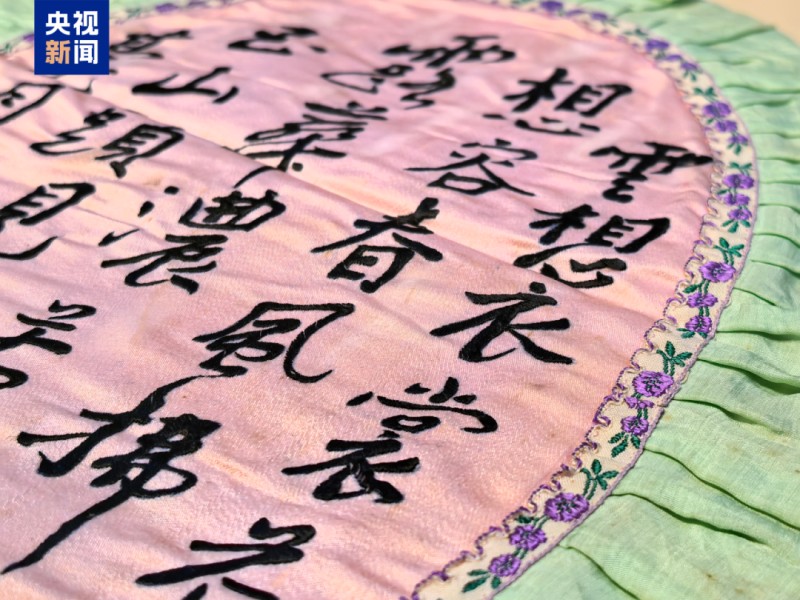 央视新闻
雲想衣裳花
想容春風拂
露華濃若
玉山頭見
月